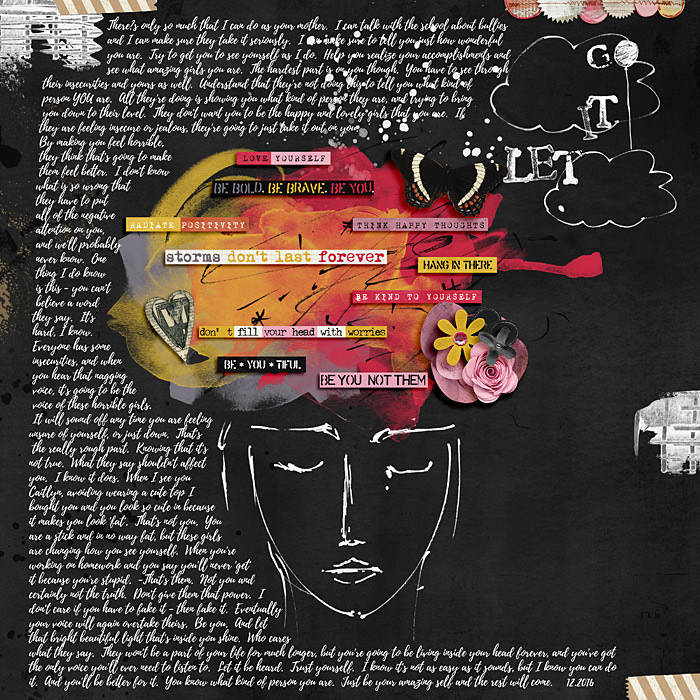 There's only so much that I can do as your mother. I can talk with the school about bullies
and I can make sure they take it seriously. I can make sure to tell you just how wonderful
you are. Try to get you to see yourself as I do. Help you realize your accomplishments and
see what amazing girls you are. The hardest part is on you though. You have to see through
their insecurities and yours as well. Understand that they're not doing this to tell you what kind of
person YOU are. All they're doing is showing you what kind of person they are, and trying to bring
you down to their level. They don't want you to be the happy and lovely girls that you are. If
they are feeling insecure or jealous, they're going to just take it out on you.
By making you feel horrible,
they think that's going to make
them feel better. I don't know
what is so wrong that
they have to put
all of the negative
attention on you,
and we'll probably
never know. One
thing I do know
is this - you can't
believe a word
they say. It's
hard, I know.
Everyone has some
insecurities, and when
you hear that nagging
voice, it's going to be the
voice of these horrible girls.
It will sound off any time you are feeling
unsure of yourself, or just down. That's
the really rough part. Knowing that it's
not true. What they say shouldn't affect
you. I know it does. When I see you
Caitlyn, avoiding wearing a cute top I
bought you and you look so cute in because
it makes you look 'fat'. That's not you. You
are a stick and in no way fat, but these girls
are changing how you see yourself. When you're
working on homework and you say you'll never get
it because you're stupid. -That's them. Not you and
certainly not the truth. Don't give them that power. I
don't care if you have to fake it - then fake it. Eventually
your voice will again overtake theirs. Be you. And let
that bright beautiful light that's inside you shine. Who cares
what they say. They won't be a part of your life for much longer, but you're going to be living inside your head forever, and you've got
the only voice you'll ever need to listen to. Let it be heard. Trust yourself. I know it's not as easy as it sounds, but I know you can do
it. And you'll be better for it. You know what kind of person you are. Just be your amazing self and the rest will come. 12.2016
GO
IT
LET
LOVE YOURSELF
BE BOLD. BE BRAVE. BE YOU.
RADIATE POSITIVITY
THINK HAPPY THOUGHTS
storms don't last forever
HANG IN THERE
BE KIND TO YOURSELF
don't fill your head with worries
BE * YOU * TIFUL
BE YOU NOT THEM